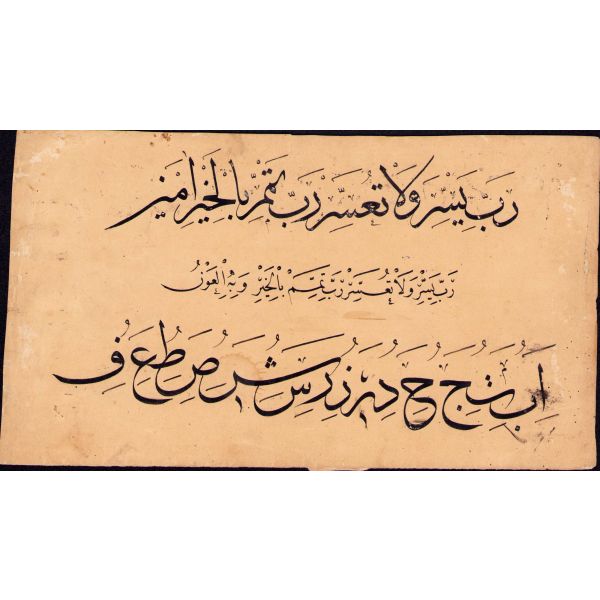 رَبِّ يَسِّرْ وَلَا تُعَسِّرْ رَبِّ تَمِّمْ بِالْخَيْرِ امين
رَبِّ يَسِّرْ وَلَا تُعَسِّرْ رَبِّ تَمِّمْ بِالْخَيْرِ وَبِهِ الْعَوْنُ
ا ب ت ج ح د ر ز س ش ص ط ع ف